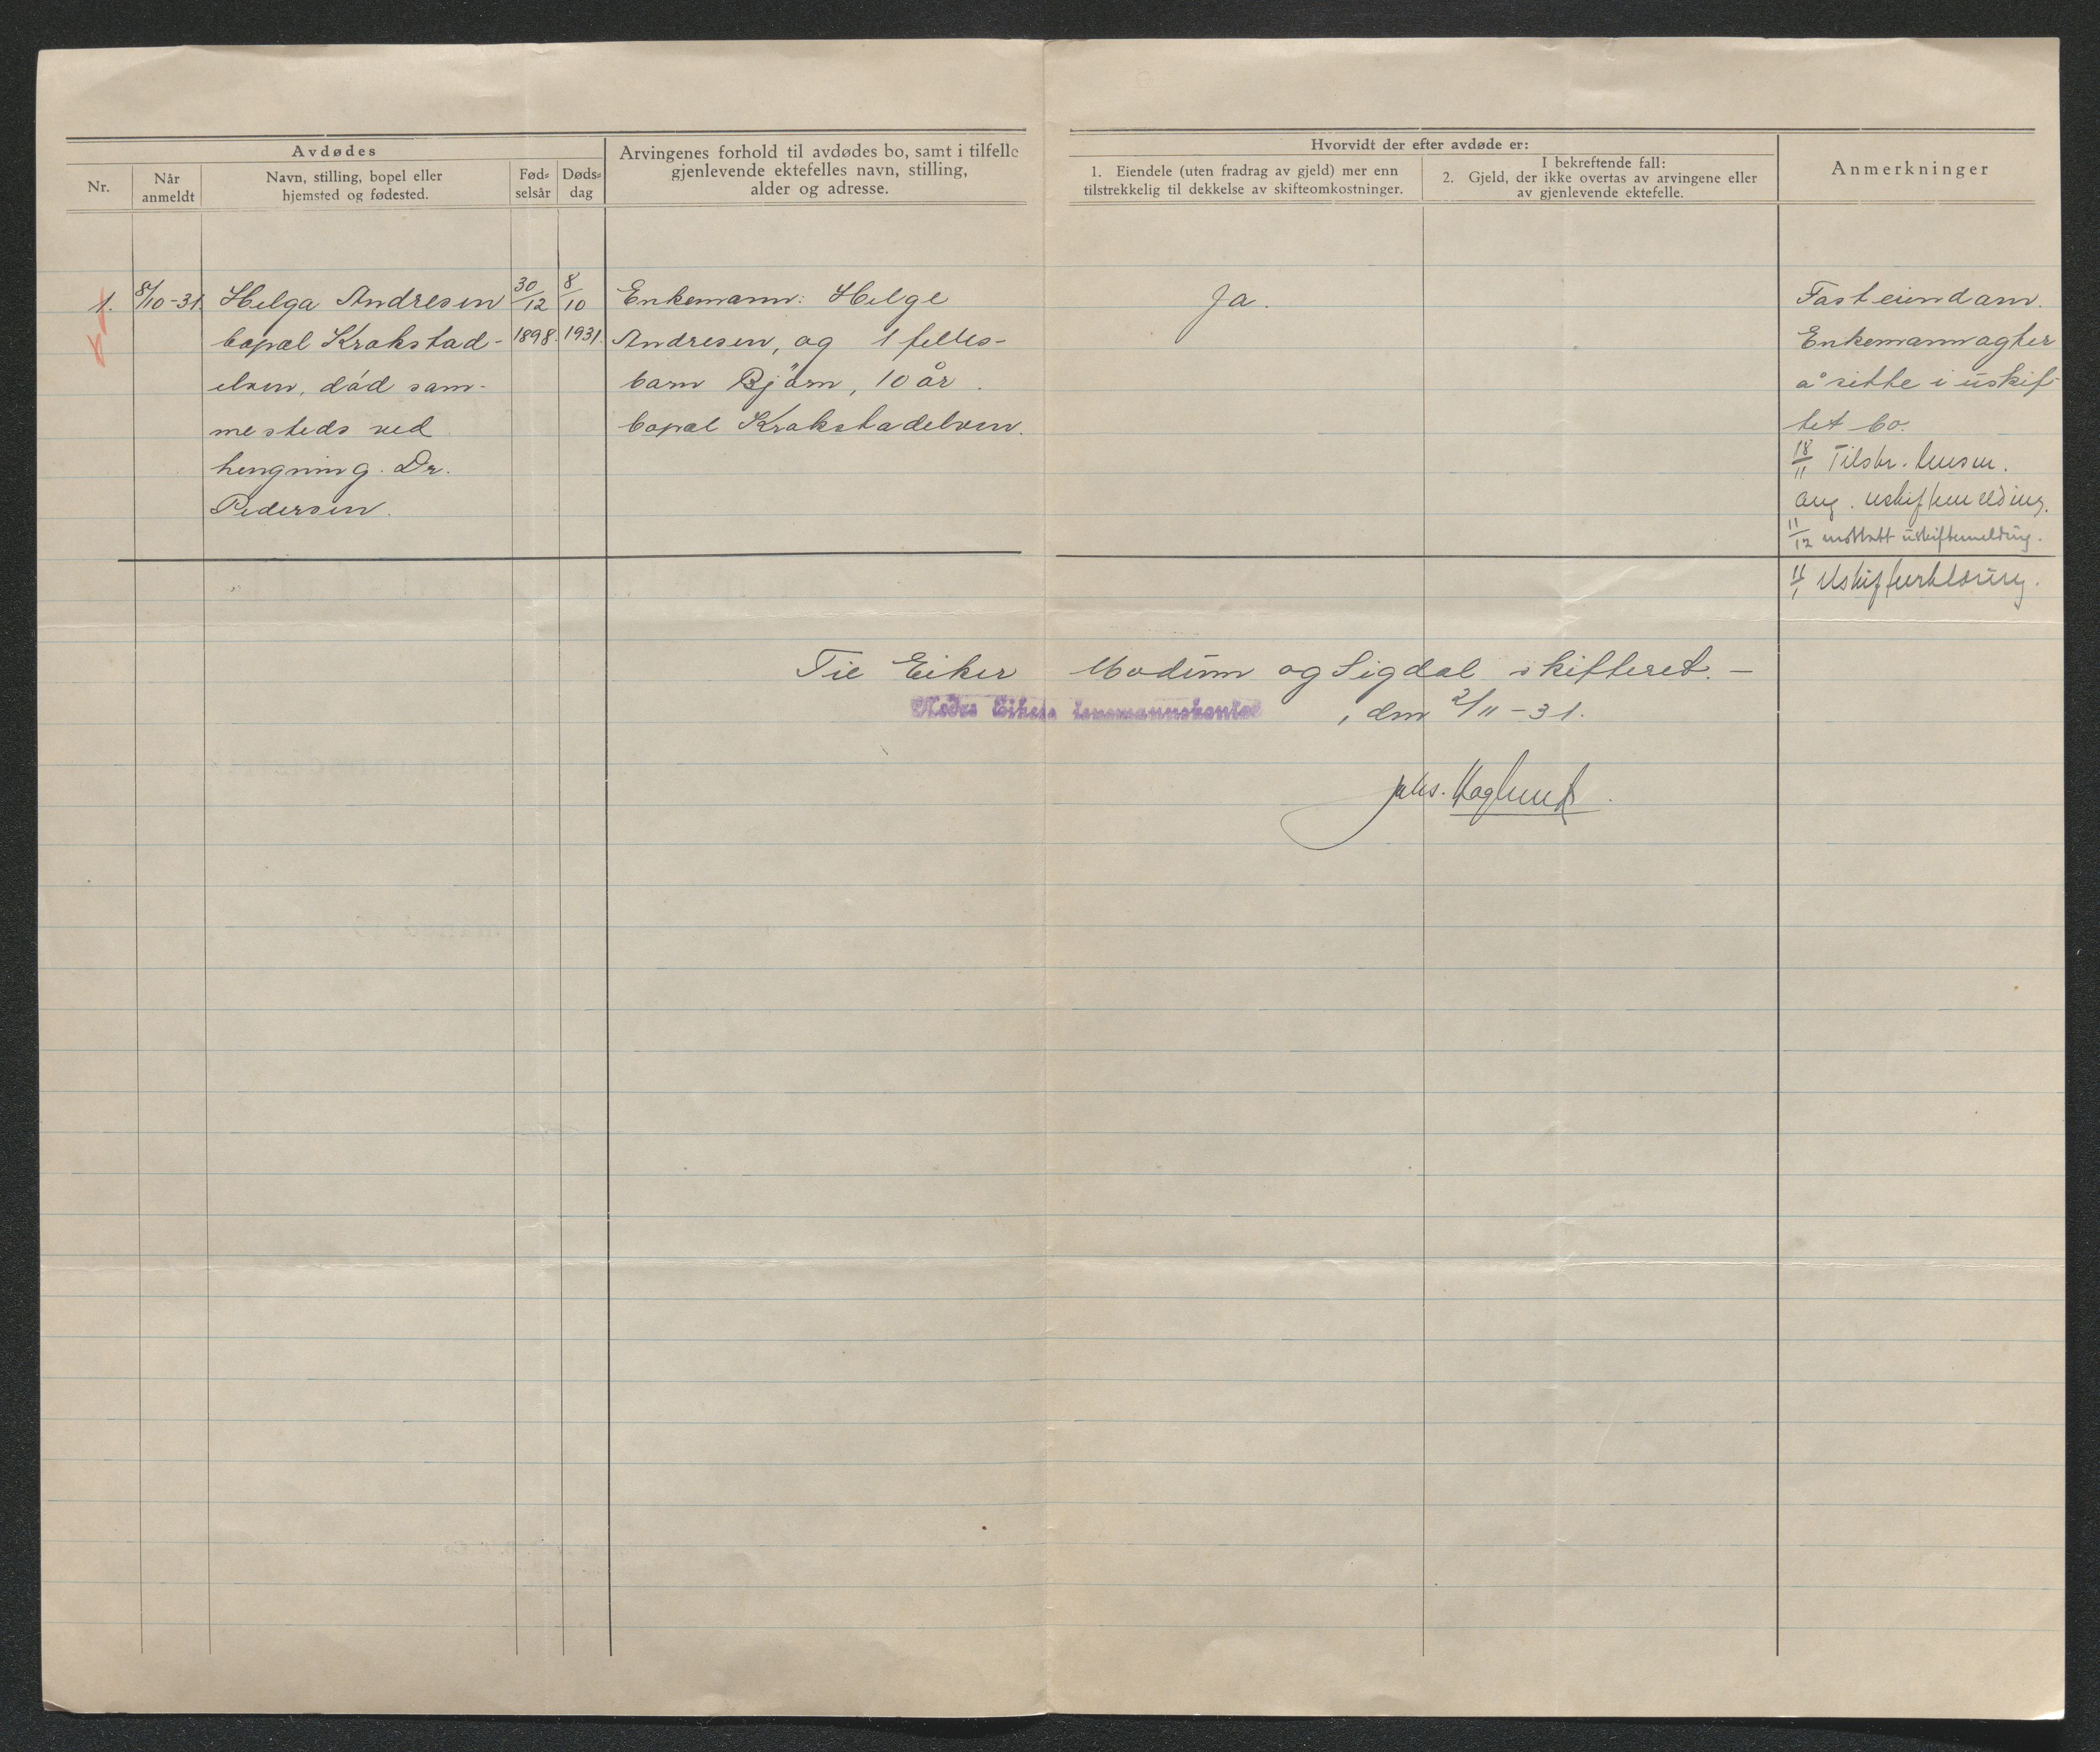 Avdødes
Nr.
Når
anmeldt
Navn, stilling, bopel eller
hjemsted og fødested.
Fød-
selsår
Døds-
dag
Arvingenes forhold til avdødes bo, samt i tilfelle
gjenlevende ektefelles navn, stilling,
alder og adresse.
Hvorvidt der efter avdøde er:
1. Eiendele (uten fradrag av gjeld) mer enn
tilstrekkelig til dekkelse av skifteomkostninger.
I bekreftende fall:
2. Gjeld, der ikke overtas av arvingene eller
av gjenlevende ektefelle.
Anmerkninger
1.
8/10-31.
Helga Andresen
bopæl Krokstad-
elven, död sam-
mesteds ved
hengning. Dr.
Pedersen.
30/12
1898.
8/10
1931.
Enkemann: Helge
Andresen, og 1 felles-
barn Björn, 10 år.
bopæl Krokstadelven.
Ja.
Fast eiendom.
Enkemann agter
å sitte i uskif-
tet bo.
18/11 Tilskr. lensm.
ang. uskiftemelding.
11/12 mottatt uskiftemelding.
Uskifteerklæring.
Til Eiker Modum og Sigdal skifteret. –
Nedre Eikers lensmannskontor , den 2/11-31.
Johs. Haglund.